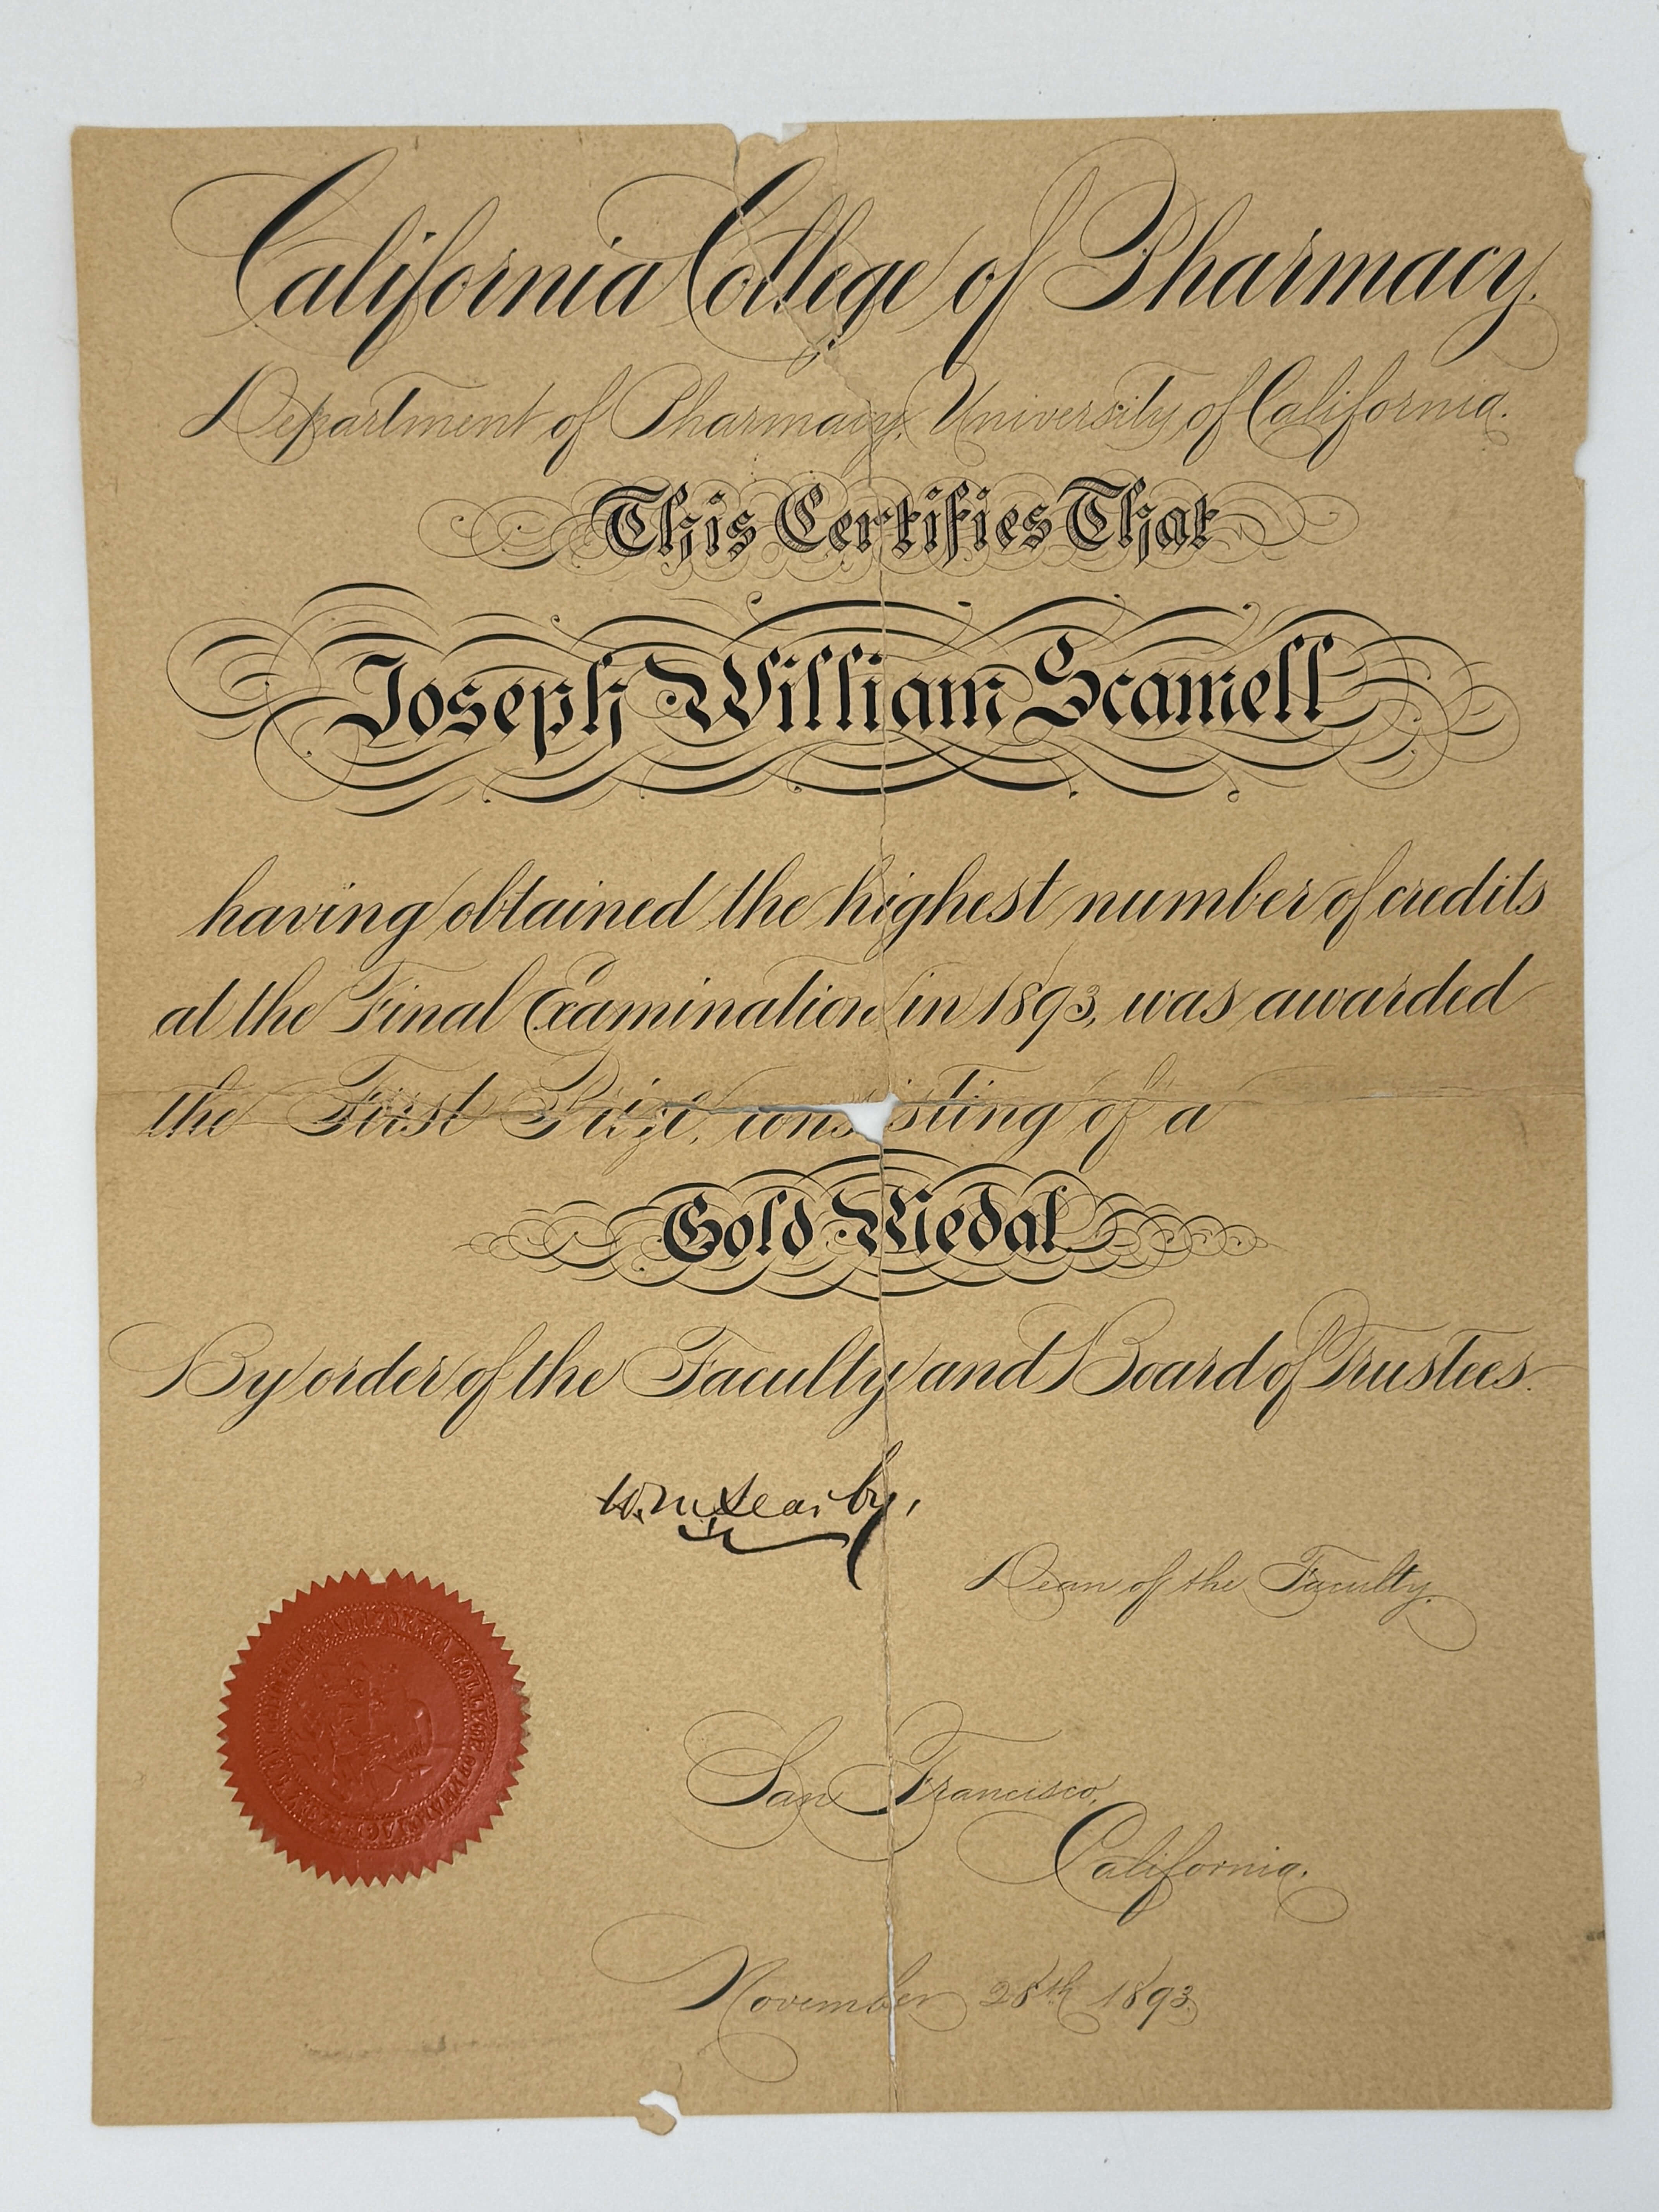 California College of Pharmacy.
Department of Pharmacy, University of California.
This Certifies That
Joseph William Scamell
having obtained the highest number of credits
at the Final Examination in 1893, was awarded
the First Prize, consisting of a
Gold Medal
By order of the Faculty and Board of Trustees.
W. M. Searby,
Dean of the Faculty.
San Francisco,
California.
November 28th 1893